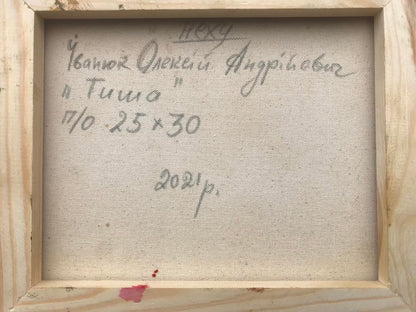 неху
Іванюк Олексій Андрійович
"Тиша"
п/о. 25×30
2021р.